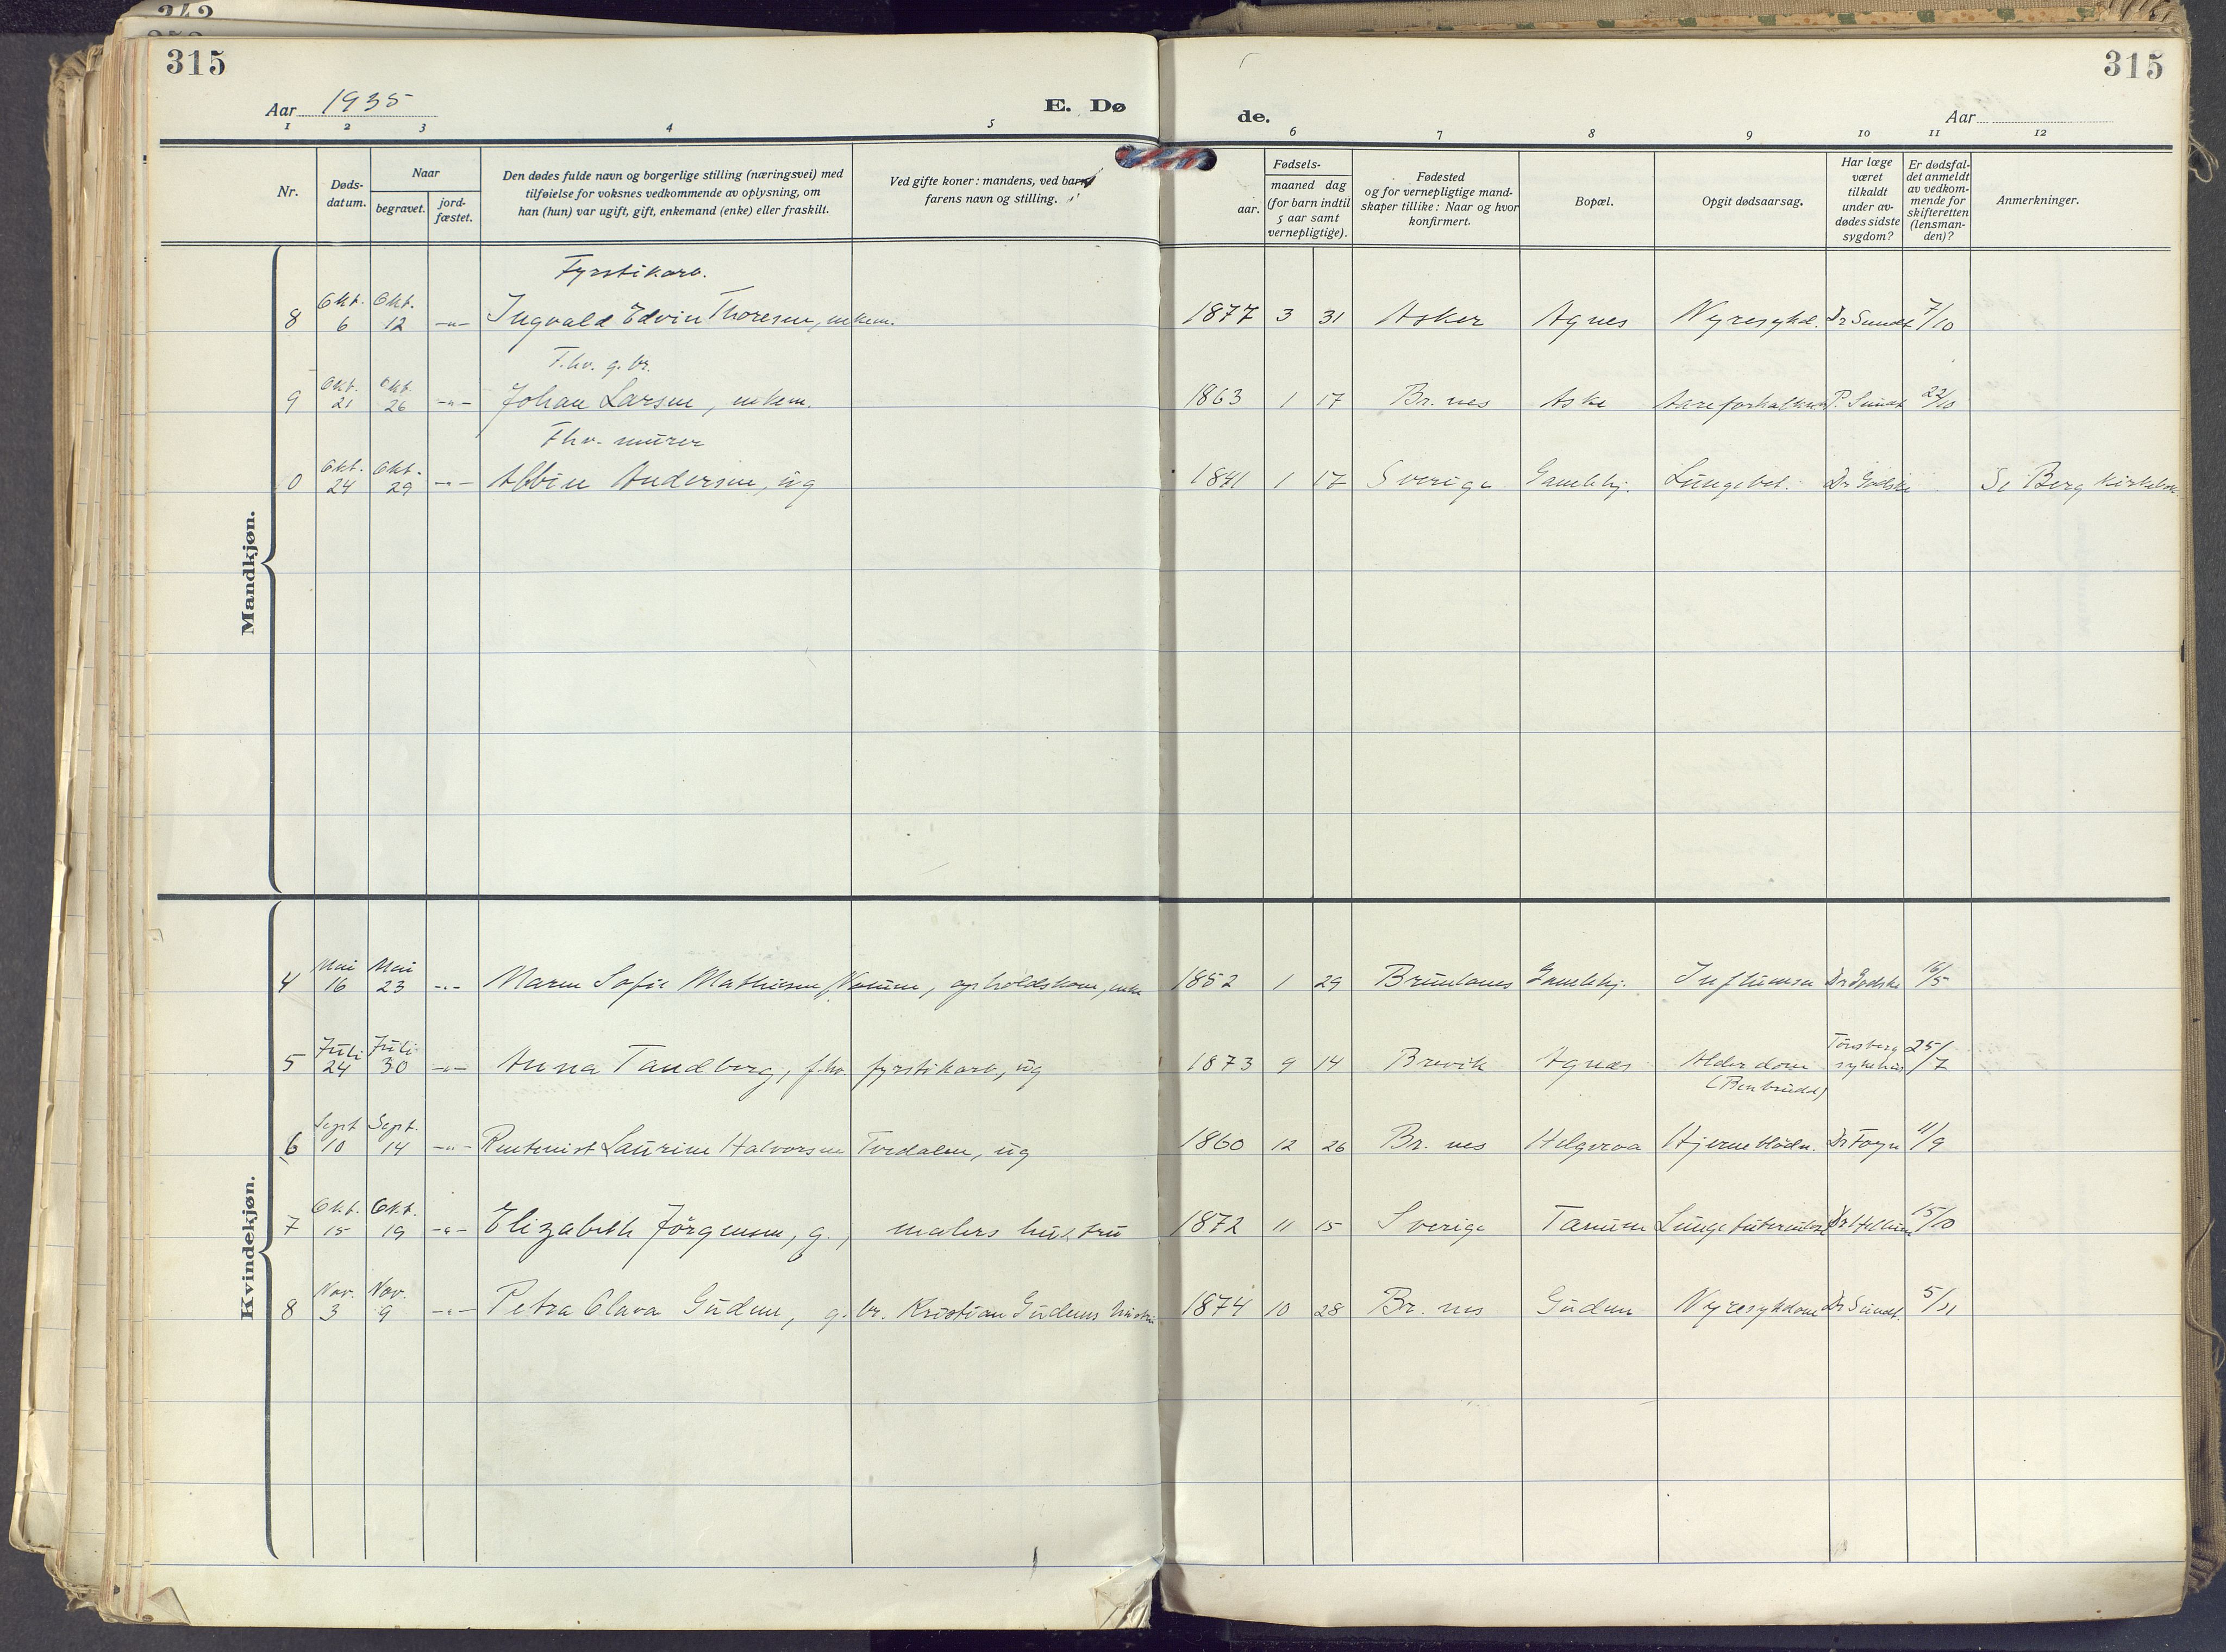 315
315
Aar 1935
E. Dø
de.
Aar
1 2 3 4 5 6 7 8 9 10 11 12
Nr.
Døds-
datum.
Naar
begravet.
jord-
fæstet.
Den dødes fulde navn og borgerlige stilling (næringsvei) med
tilføielse for voksnes vedkommende av oplysning, om
han (hun) var ugift, gift, enkemand (enke) eller fraskilt.
Ved gifte koner: mandens, ved barn
farens navn og stilling.
Fødsels-
aar.
maaned dag
(for barn indtil
5 aar samt
vernepligtige).
Fødested
og for vernepligtige mand-
skaper tillike: Naar og hvor
konfirmert.
Bopæl.
Opgit dødsaarsag.
Har læge
været
tilkaldt
under av-
dødes sidste
sygdom?
Er dødsfal-
det anmeldt
av vedkom-
mende for
skifteretten
(lensman-
den)?
Anmerkninger.
Mandkjøn.
Fyrstikarb.
8 Okt. 6 Okt. 12 -"- Ingvald Edvin Thoresen, enkem. 1877 3 31 Asker Agnes Nyresykd. Dr Sundt 7/10
F.hv. g.br.
9 Okt. 21 Okt. 26 -"- Johan Larsen, enkem. 1863 1 17 Br.nes Aske Aareforkalkn. Sundt 22/10
Fhv. murer
0 Okt. 24 Okt. 29 -"- Albin Andersen, ug 1841 1 17 Sverige Gamlehj. Lungebet. Dr Godske Se Berg kirkebok
Kvindekjøn.
4 Mai 16 Mai 23 -"- Maren Sofie Mathisen, opholdskone, enke 1852 1 29 Brunlanes Gamlehj. Influensa Dr Godske 16/5
5 Juli 24 Juli 30 -"- Anna Tandberg, f.hv. fyrstikarb, ug 1873 9 14 Brevik Agnes Alderdom (Benbrudd) Tønsberg sykehus 25/7
6 Sept 10 Sept. 14 -"- Rentenist Laurine Halvorsen Tvedalen, ug 1860 12 26 Br.nes Helgeroa Hjerneblødn. Dr Foyn 11/9
7 Okt. 15 Okt. 19 -"- Elizabeth Jørgensen, g., malers hustru 1872 11 15 Sverige Tanum Lungetuberculose Dr 15/10
8 Nov. 3 Nov. 9 -"- Petra Olava Guden, g. br. Kristian Gudens hustru 1874 10 28 Br.nes Guden Nyresykdom Dr Sundt. 5/11